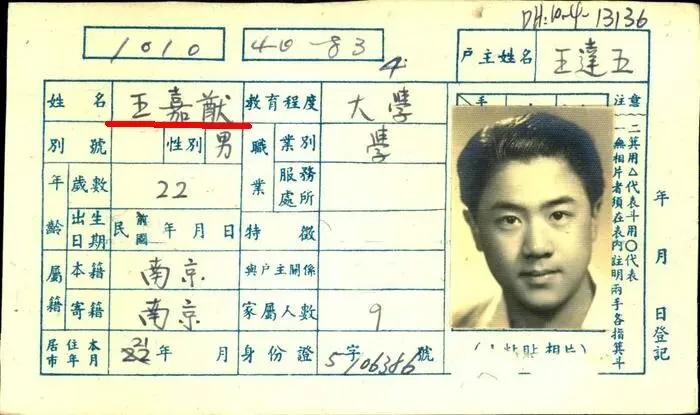 DH:10-4-13136
1010 40-83 戶主姓名 王達五
4.
姓名 王嘉猷 教育程度 大學
別號 性別 男 職業 業別 學
年齡 歲數 22 服務處所
出生日期 民前國 年月日 特徵
屬籍 本籍 南京 與戶主關係
寄籍 南京 家屬人數 9
居住本市年月 21 年 月 身份證 字 號
手
注意
一無相片者須在表內註明兩手各指箕斗
二箕用△代表斗用〇代表
粘貼相片
年 月 日登記